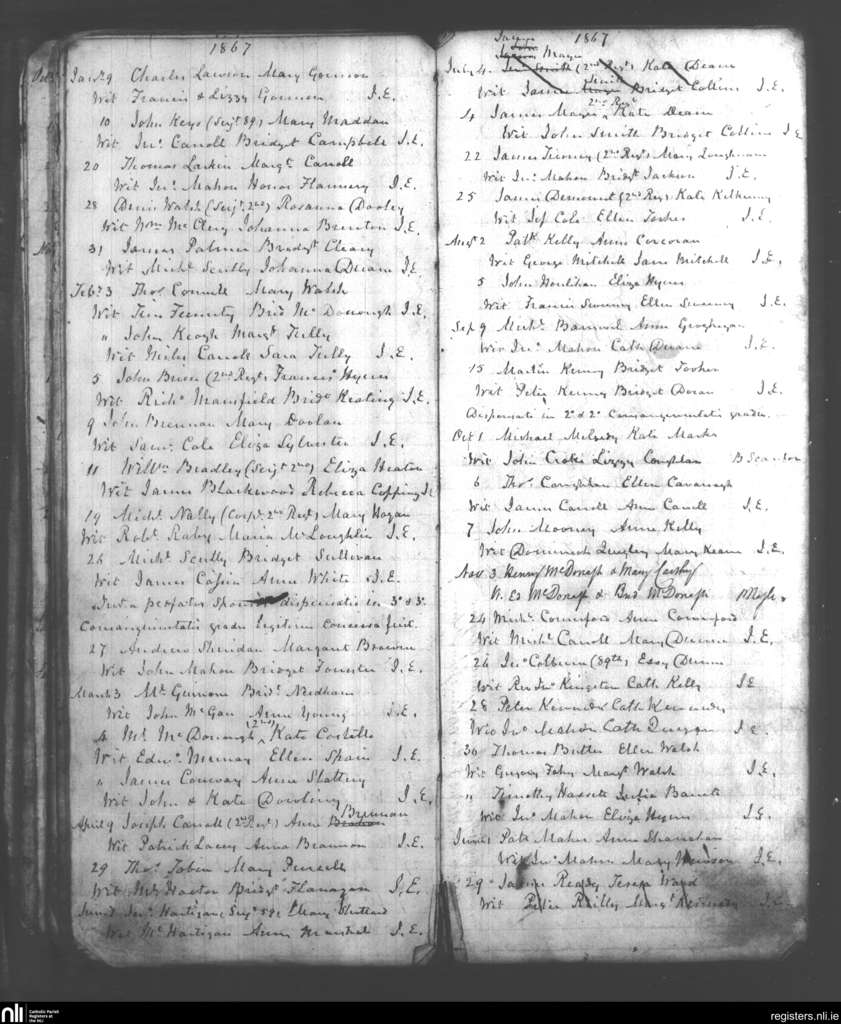 1867
Janry 9 Charles Lawson Mary Gannon
Wit Francis & Lizzy Gannon J.E.
10 John Keys (Serjt 89) Mary Maddan
Wit Jno. Carroll Bridget Campbell J.E.
20 Thomas Larkin Margt. Carroll
Wit Jno. Mahon Honor Flannery J.E.
28 Denis Walsh (Serjt. 2nd) Rosanna Dooley
Wit Wm. McClery Johanna Brenton J.E.
31 James Palmer Bridgt. Cleary
Wit Michl. Scully Johanna Deane J.E.
Feby. 3 Thos. Connell Mary Walsh
Wit Tim Brid McDonough J.E.
" John Keogh Margt. Tully
Wit Miles Carroll Sara Tully J.E.
5 John Brien (2nd Regt) Frances Hyens
Wit Richd. Mansfield Bridt. Keating J.E.
9 John Brennan Mary Doolan
Wit Saml. Cole Eliza Sylvester J.E.
11 Willm. Bradley (Serjt 2nd) Eliza Heaton
Wit James Blackwood Rebecca Copping J.E.
19 Michl. Nally (Corpl. 2nd Regt) Mary Hogan
Wit Robt. Raby Maria McLoughlin J.E.
26 Michl. Scully Bridget Sullivan
Wit James Cassin Anne White J.E.
dispensatio in 3o & 3o
Consanguinitatis gradu legitime concessa fuit.
27 Andrew Sheridan Margaret Browne
Wit John Mahon Bridget J.E.
March 3 Ml. Gunnon Bridt. Needham
Wit John McGan Anne Young J.E.
4 Ml. McDonough (2nd) Kate Costello
Wit Edwd. Murray Ellen Spain J.E.
" James Conway Anne Slattery
Wit John & Kate Dowling J.E.
Brennan
April 9 Joseph Carroll (2nd Regt) Anne
Wit Patrick Lacey Anna Brannon J.E.
29 Thos. Tobin Mary Pursell
Wit Hector Bridgt Flanagan J.E.
June Jno. Hartigan (Serjt 58) Mary
Wit Ml. Hartigan Anne Marshal J.E.
1867
James
Mayer
July 4 Jno Smith (2nd Regt) Kate Deane
Smith
Wit James Bridget Collins J.E.
2nd Regt
4 James Mayer Kate Deane
Wit John Smith Bridget Collins J.E.
22 James Tierney (2nd Regt) Mary Loughnan
Wit Jno. Mahon Bridgt Jackson J.E.
25 James Demount (2nd Reg) Kate Kilkenny
Wit Jos Cole Ellen J.E.
Augt 2 Patk. Kelly Anne Corcoran
Wit George Mitchell Jane Mitchell J.E.
5 John Houlihan Eliza Hyens
Wit Francis Sweeney Ellen Sweeney J.E.
Sep 9 Michl. Anne Geoghegan
Wit Jno. Mahon Cath Duane J.E.
15 Martin Kenny Bridget
Wit Peter Kenny Bridget Doran J.E.
Dispensati in 2o & 2o Consanguinitatis gradu.
Oct 1 Michael Kate Marks
Wit John Lizzy Coughlan B Scanlon
6 Thos. Coughlan Ellen Cavanagh
Wit James Carroll Ann Carroll J.E.
7 John Mooney Anne Kelly
Wit Dominick Quigley Mary Keane J.E.
Nov 3 Henry McDonogh & Mary Carthy
W. Ed McDonogh & Brid McDonogh
24 Michl. Comerford Anne Comerford
Wit Michl. Carroll Mary Deane J.E.
26 Jno. Colburn (89th) Essy Dunne
Wit Rev Jno Kingston Cath Kelly J.E
28 Peter Kennedy Cath Kennedy
Wit Jno Mahon Cath Duggan J.E.
30 Thomas Butler Ellen Walsh
Wit Fahy Margt Walsh J.E.
" Timothy Hassett
Wit Jno. Mahon Eliza Hyens J.E.
Patk Maher Anne Shanahan
Wit Jno. Mahon Mary J.E.
29 James Teresa Ward
Wit Peter Reilly Margt Kennedy J.E.
nli
Catholic Parish
Registers at
the NLI
registers.nli.ie